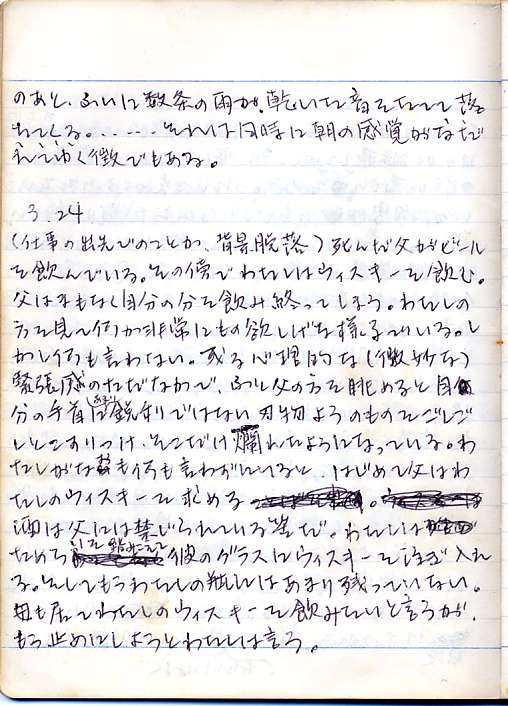 のあと、ふいに数条の雨が、乾いた音をたてて落
ちてくる。‥‥‥それは同時に朝の感覚がなだ
えてゆく徴でもある。
3.24
(仕事の出先でのことか、背景脱落)死んだ父がビール
を飲んでいる。その傍でわたしはウィスキーを飲む。
父はまもなく自分の分を飲み終ってしまう。わたしの
方を見て何か非常にもの欲しげな様子でいる。し
かし何も言わない。或る心理的な(微妙な)
緊張感のただなかで、ふと父の方を眺めると自
分の手首に鋭利ではない刃物ようのものをごしご
しとこすりつけ、そこだけ爛れたようになっている。わ
たしがなおも何も言わずにいると、はじめて父はわ
たしのウィスキーを求める。
酒は父には禁じられている筈だ。わたしは
ためらいを踏みこえて彼のグラスにウィスキーを注ぎ入れ
る。そしてもうわたしの瓶にはあまり残っていない。
母も居てわたしのウィスキーを飲みたいと言うが、
もう止めにしようとわたしは言う。